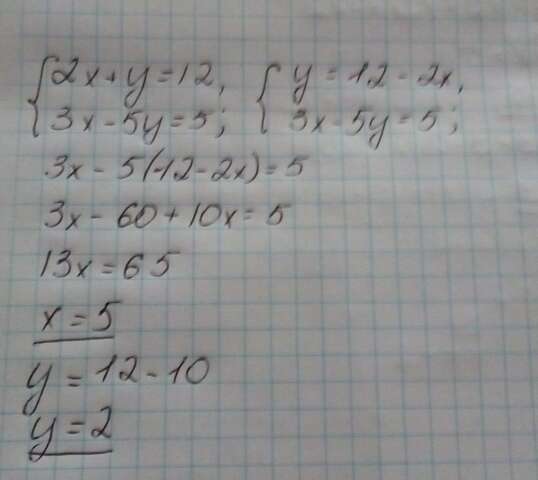 {2x+y=12, {y=12-2x,
{3x-5y=5; {3x-5y=5;
3x-5(12-2x)=5
3x-60+10x=5
13x=65
x=5
y=12-10
y=2